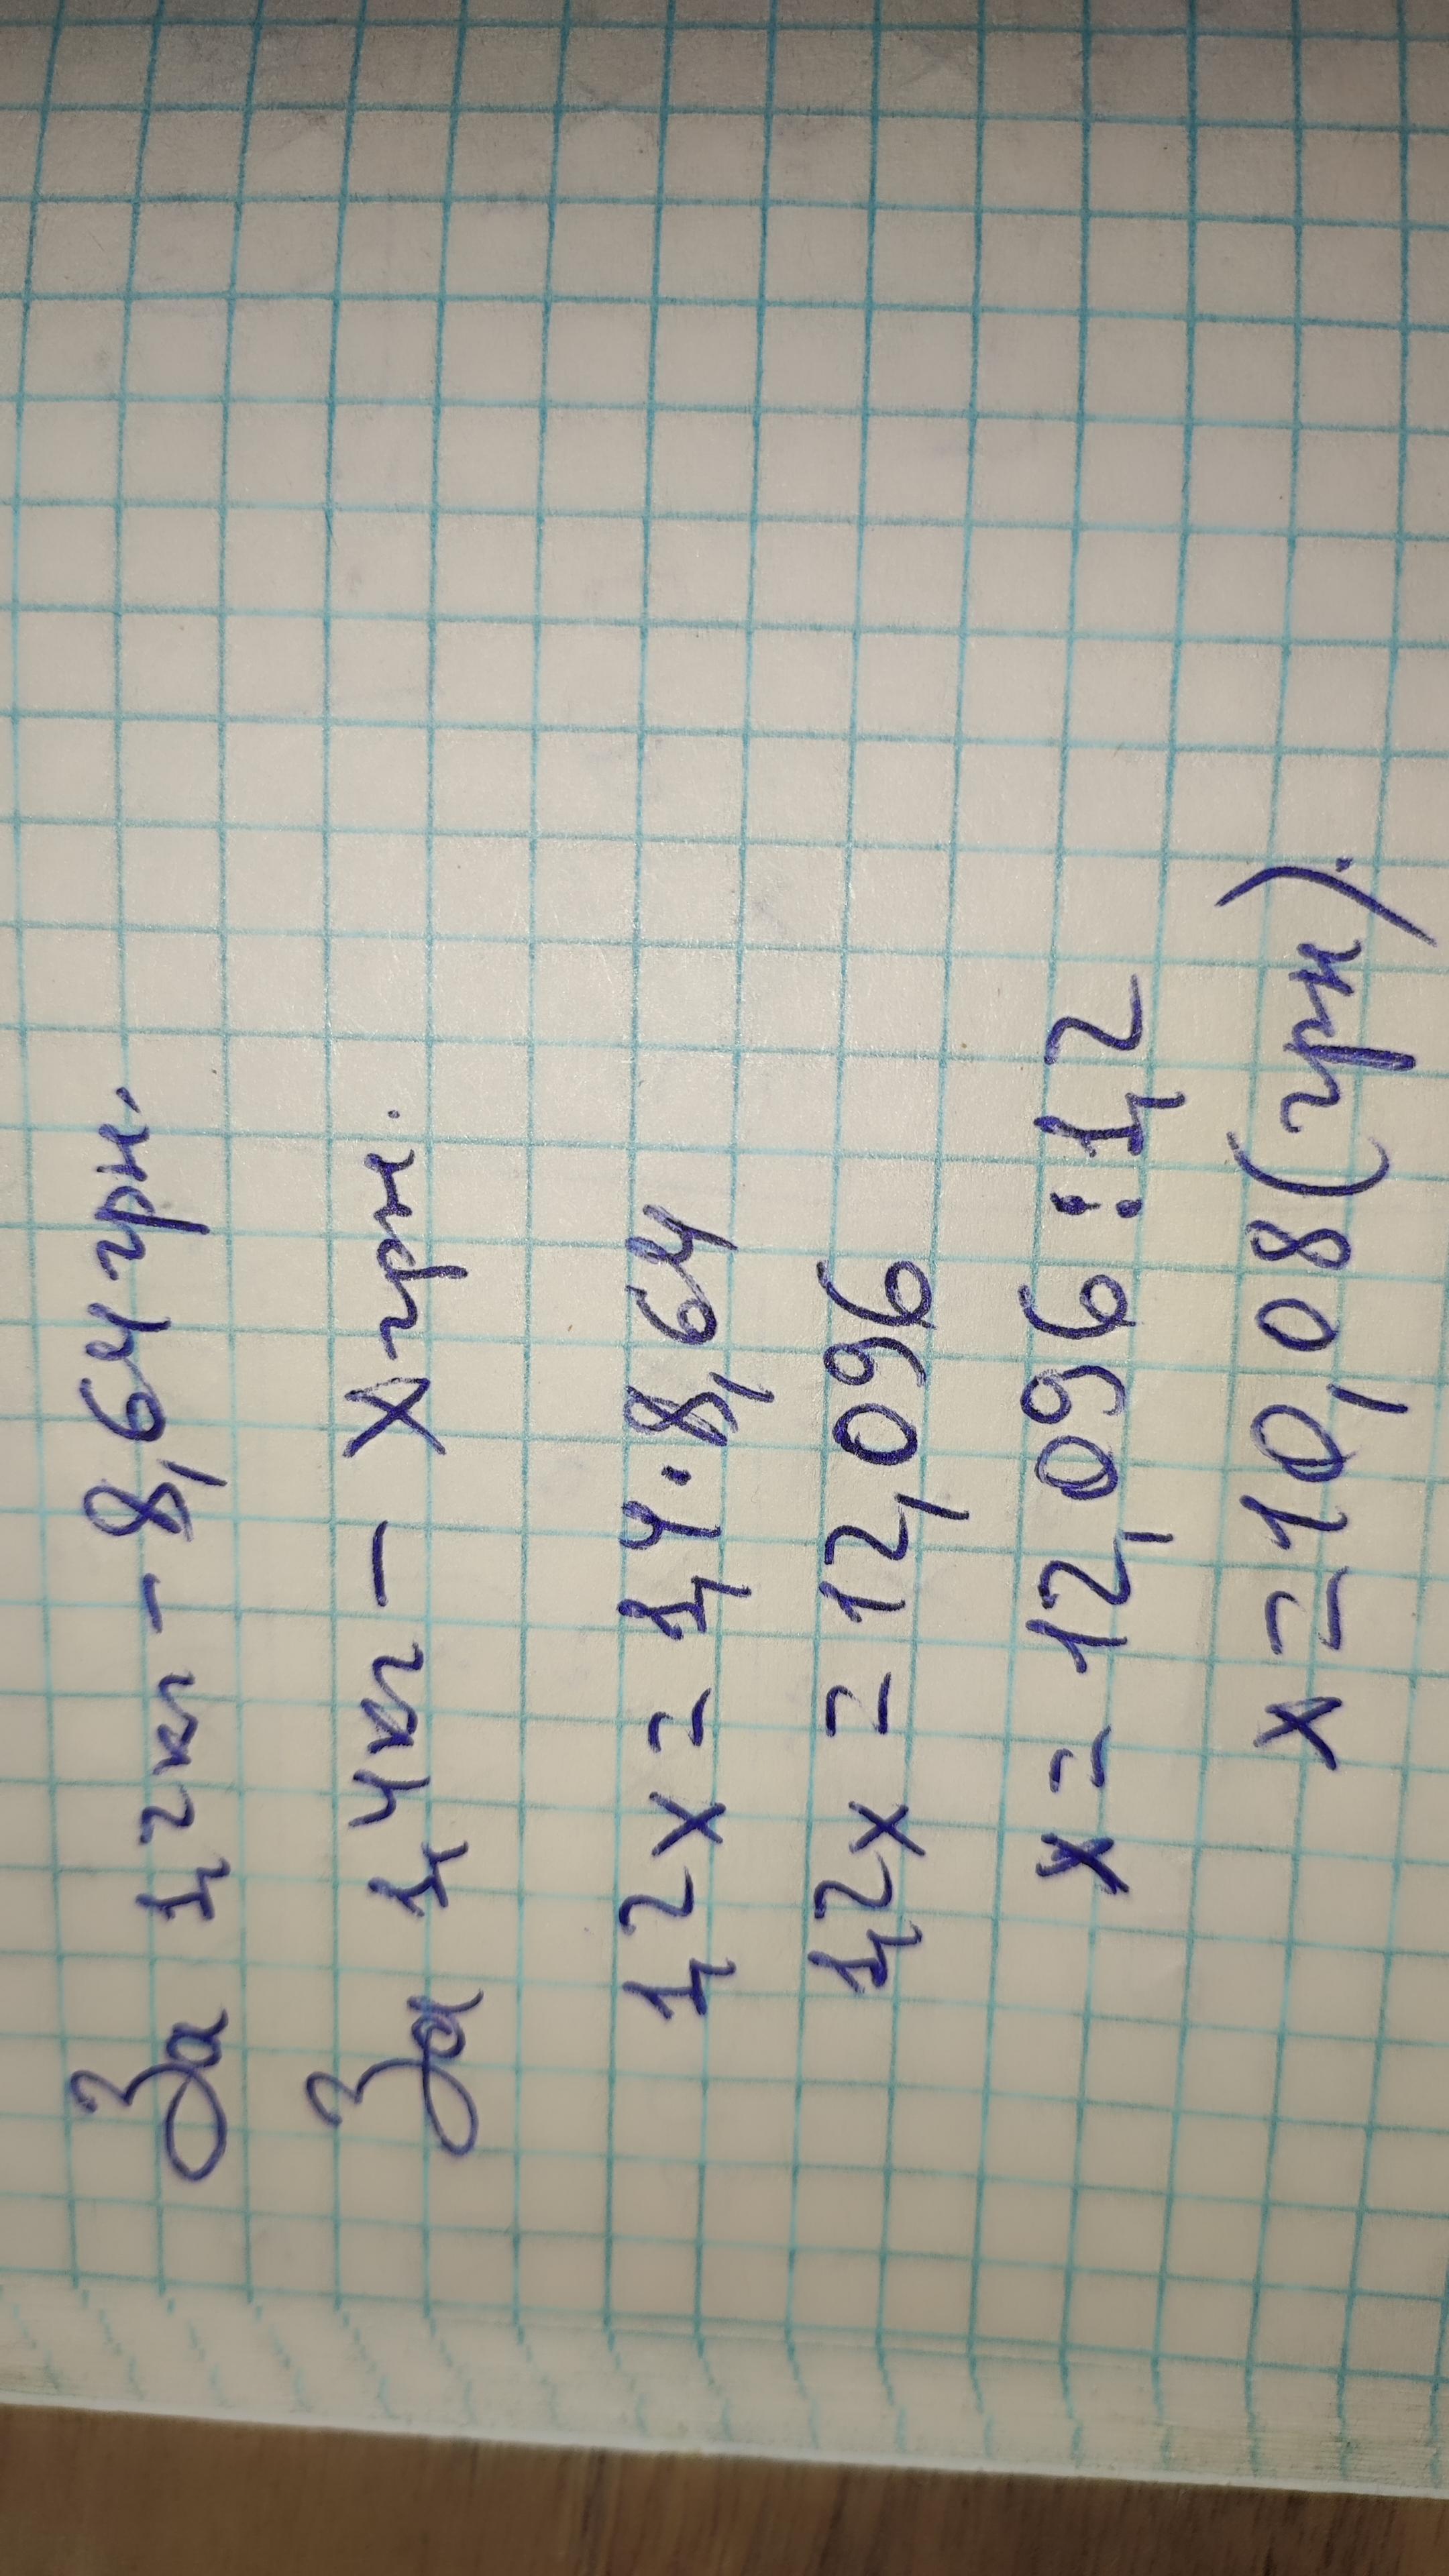 За 1,2кг – 8,64 грн.
За 1,4кг – х грн.
1,2х = 1,4·8,64
1,2х = 12,096
х = 12,096 : 1,2
х = 10,08 (грн).